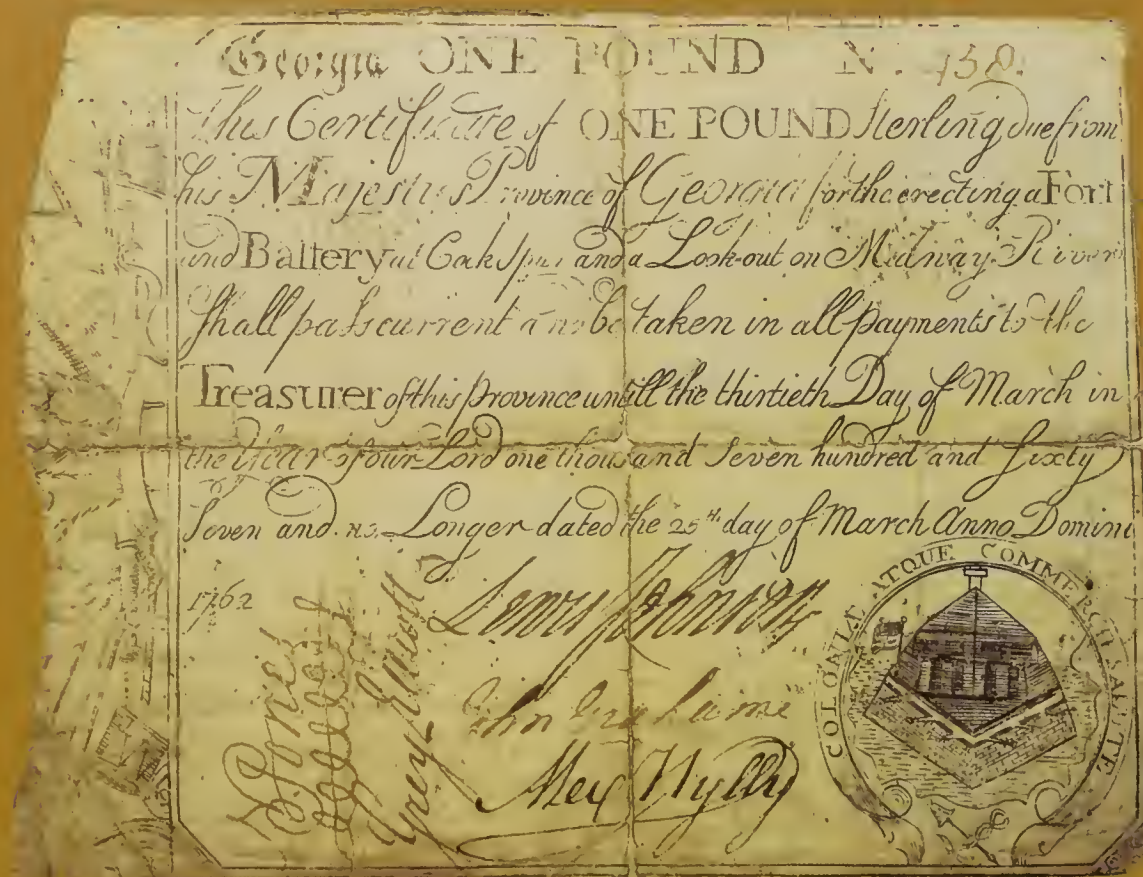 Georgia ONE POUND N. 158.
This Certificate of ONE POUND Sterling due from
his Majestys Province of Georgia for the erecting a Fort
and Battery at Cockspur and a Look-out on Medway River
shall pass current and be taken in all Payments to the
Treasurer of this Province untill the thirtieth Day of March in
the Year of our Lord one thousand seven hundred and sixty
seven and no Longer dated the 25th day of March Anno Domini
1762
Lewis Johnson
Grey Elliott
N Jones
John Grahame
Alex Wylly
COLONIÆ ATQUE COMMERCII SALUTE